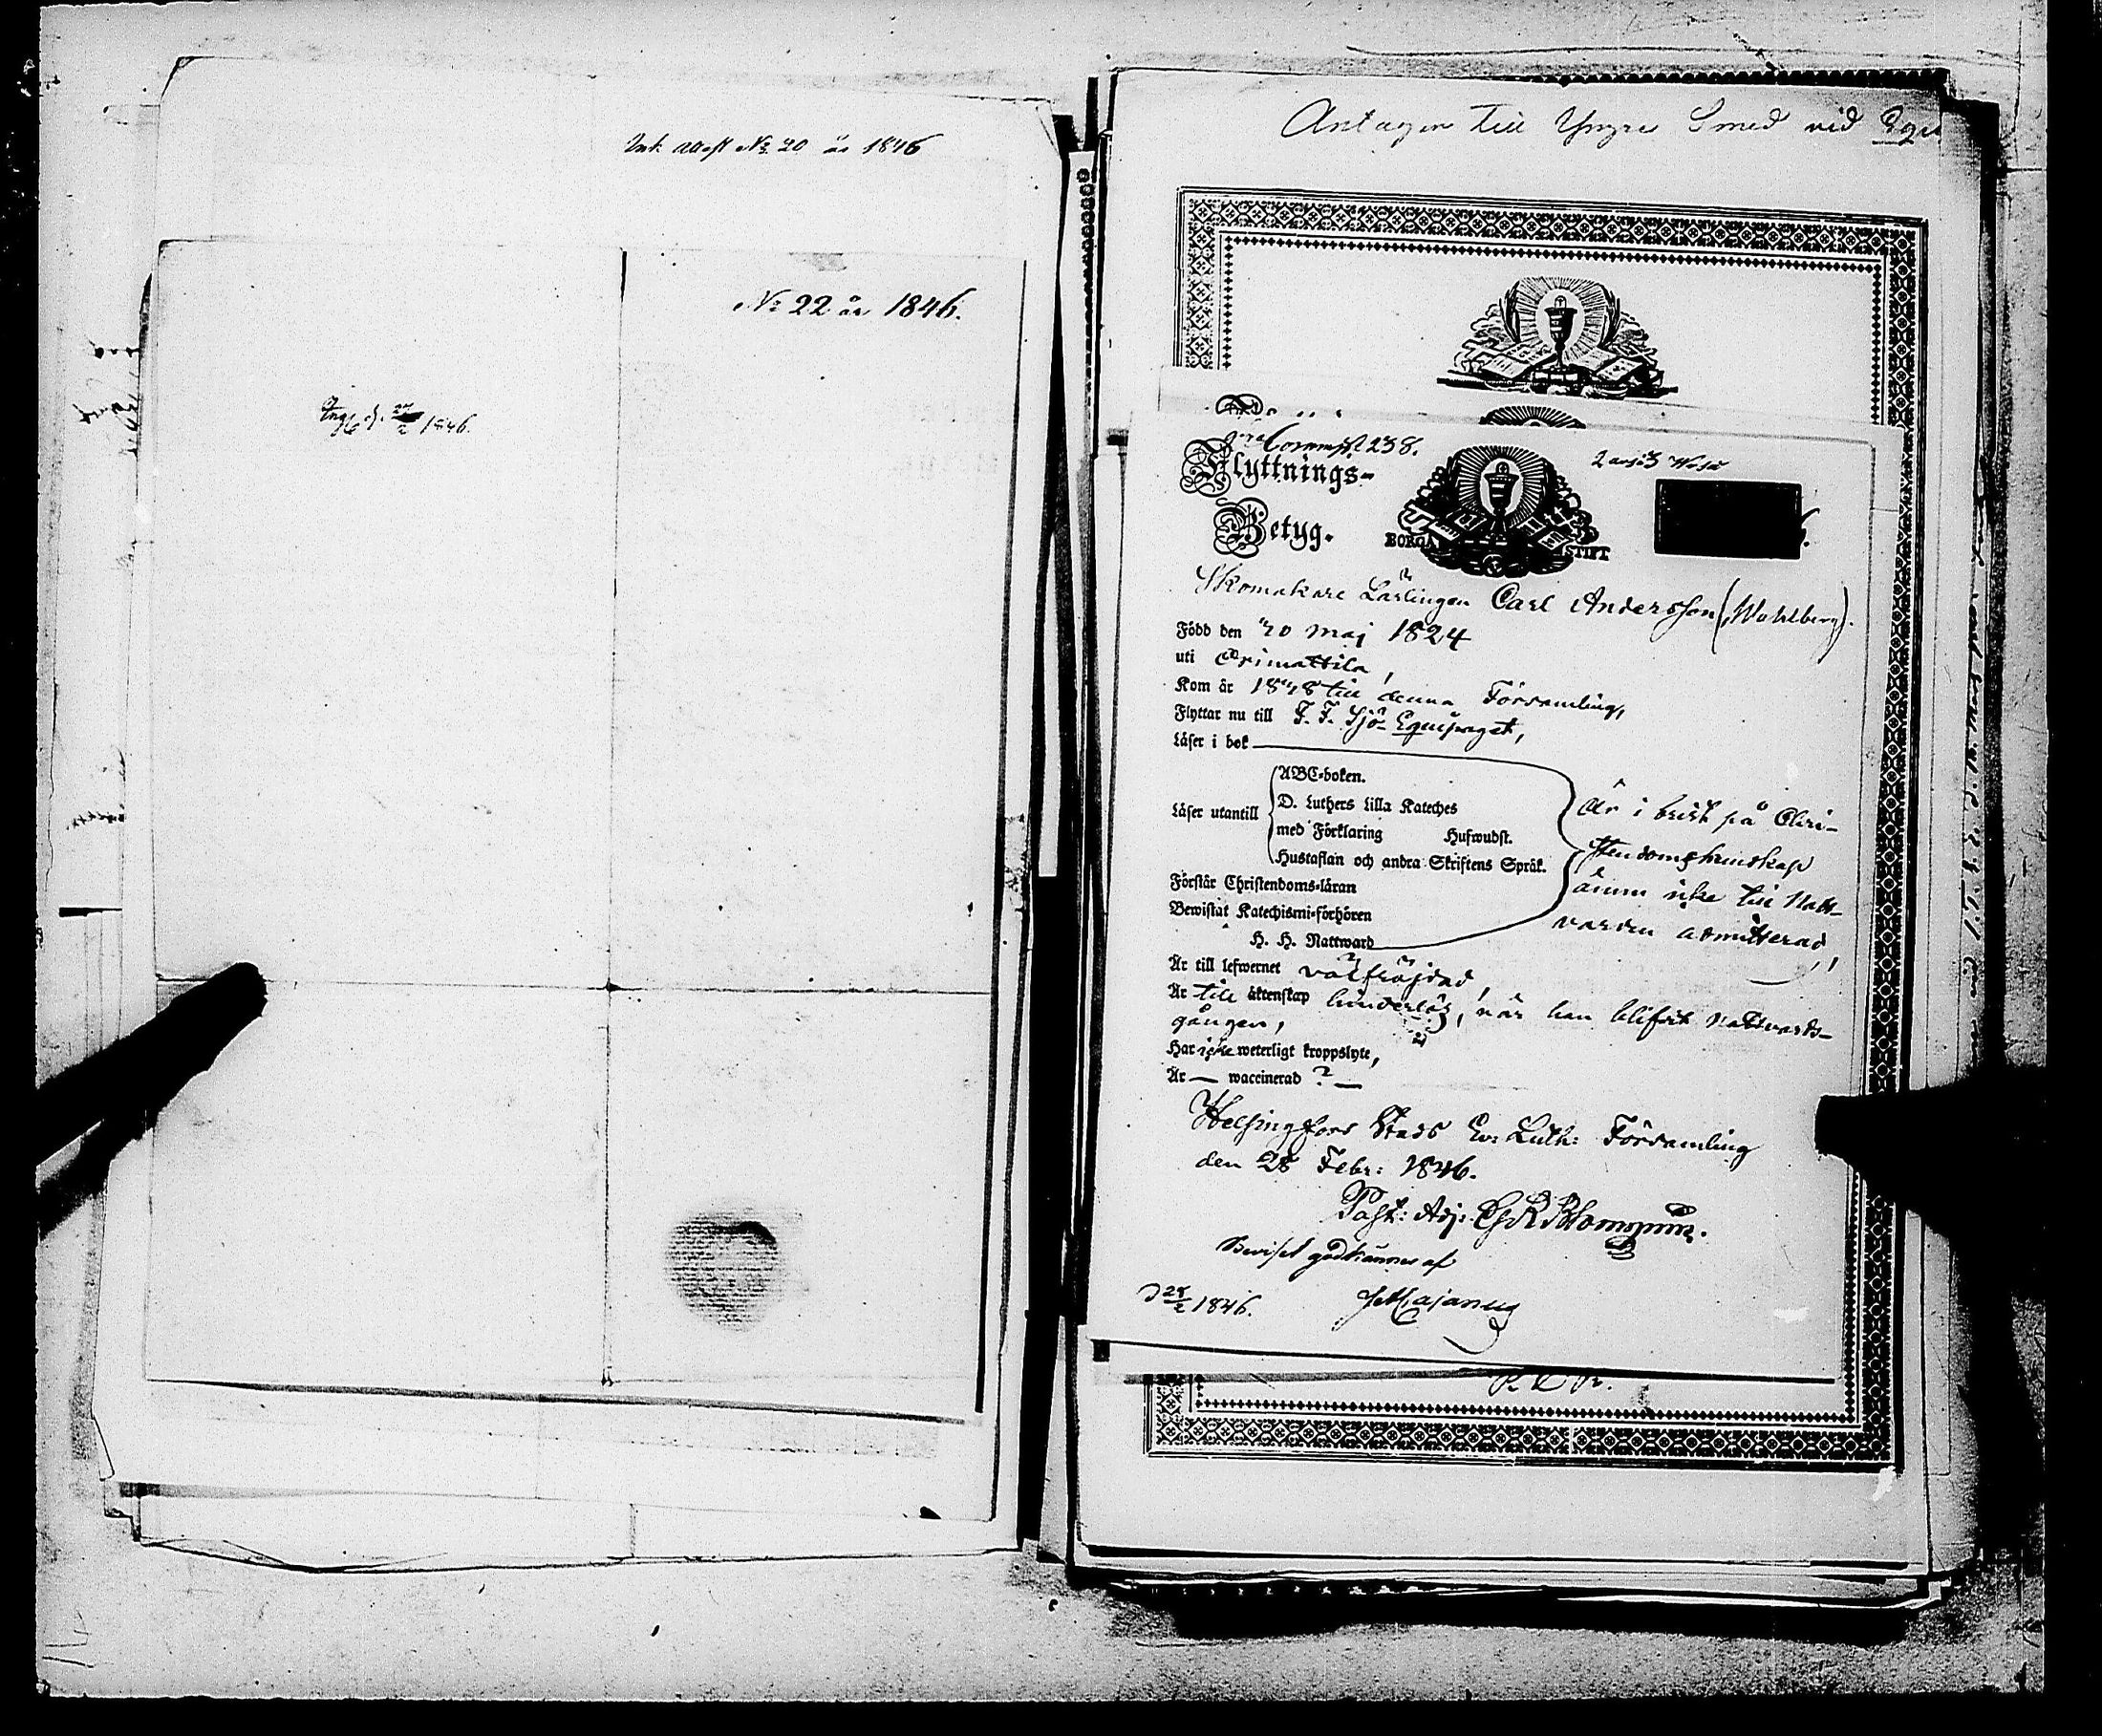 Ink. Attest No 20 år 1846
No 22 år 1846.
Ingl. d. 1846.
Antagen till Yngre Smed vid
Flyttnings-
Betyg.
BORGÅ STIFT
Skomakare Lärlingen Carl Andersson (Wahlberg).
Född den 20 Maj 1824
uti Orimattila,
Kom år till denna Församling,
Flyttar nu till F. F. Sjö-Equipaget,
Läser i bok
Läser utantill
ABC-boken.
D. Luthers Lilla Kateches
med Förklaring Hufwudst.
Hustaflan och andra Skriftens Språk.
Förstår Christendoms-läran
Bewistat Katechismi-förhören
H. H. Nattward
Är i brist på Chri-
stendomskunskap
ännu icke till Natt-
varden admitterad,
Är till lefwernet välfräjdad,
Är till äktenskap hinderlös, när han blifvit nattvards-
gången,
Har icke weterligt kroppslyte,
Är — waccinerad ? —
Helsingfors Stads Ev: Luth: Församling
den 28 Febr: 1846.
Past: Adj:
Beviset godkännes af
d 28/2 1846. Majanus